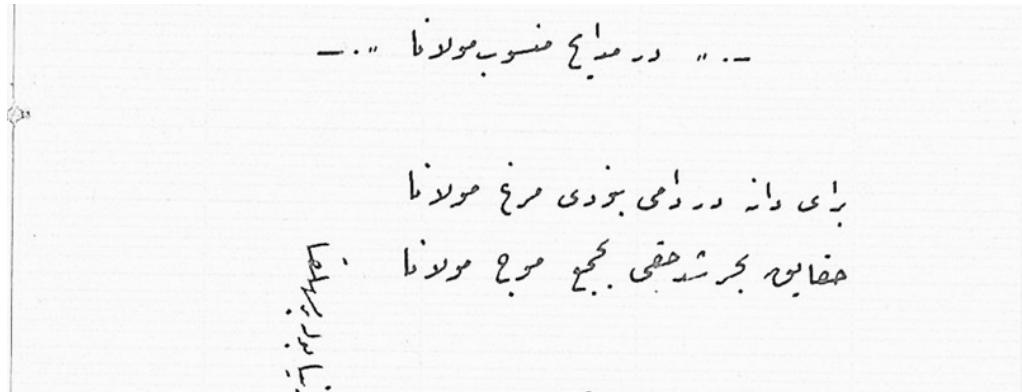 در مدایح منسوب مولانا
برای دانه در دامی بخودی مرغ مولانا
حقایق بحر شد حقی بجمع موج مولانا